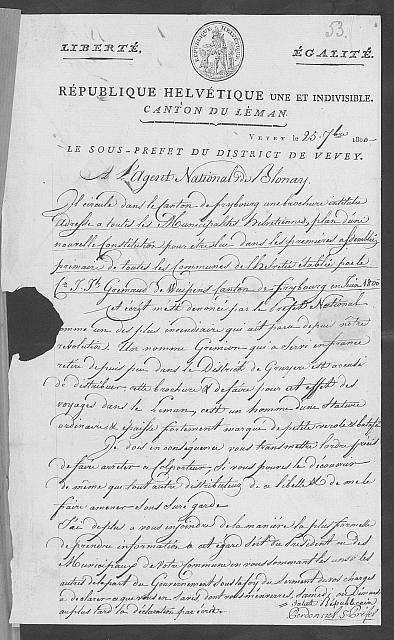 53.
LIBERTÉ.
RÉPUBLIQUE HELVÉTIQUE
ÉGALITÉ.
RÉPUBLIQUE HELVÉTIQUE UNE ET INDIVISIBLE.
CANTON DU LÉMAN
VEVEY le 25. 7bre 1800
LE SOUS-PREFET DU DISTRICT DE VEVEY.
A l'Agent National de Blonay.
Il circule dans le Canton de fribourg une brochure intitulée
Adresse a toutes les Municipalités helvetiennes, plan d'une
nouvelle Constitution pour être lue dans les premieres assemblées
primaires de toutes les Communes de l'helvetie établie par le
Cn J. Jh Gremaud de Wuipens Canton de frybourg en Juin 1800
cet écrit m'est denoncé par le Prefet National
comme un des plus incendiaire qui ait paru depuis notre
revolution. Un nommé Gremion qui a servi en france
retiré depuis peu dans le District de Gruyere est accusé
de distribuer cette brochure & de faire pour cet effet des
voyages dans le Leman, cest un homme d'une stature
ordinaire & epaisse fortement marqué de petite verole &
Je dois en consequence vous transmettre l'ordre précis
de faire arreter ce colporteur, si vous pouvés le découvrir
de même que tout autre distributeur de ce libelle & de me le
faire amener sous sure garde
J'ai de plus a vous enjoindre de la maniere la plus formelle
de prendre information a cet égard soit du Président ou des
Municipaux de votre Commune en vous sommant les uns & les
autres de la part du Gouvernement sous la foy du serment de vos charges
a déclarer ce que vous en savés dont vous m'enverrés, samedi ou Dimanche
au plus tard la déclaration par écrit. Salut Républicain
Perdonnet S. Préfet